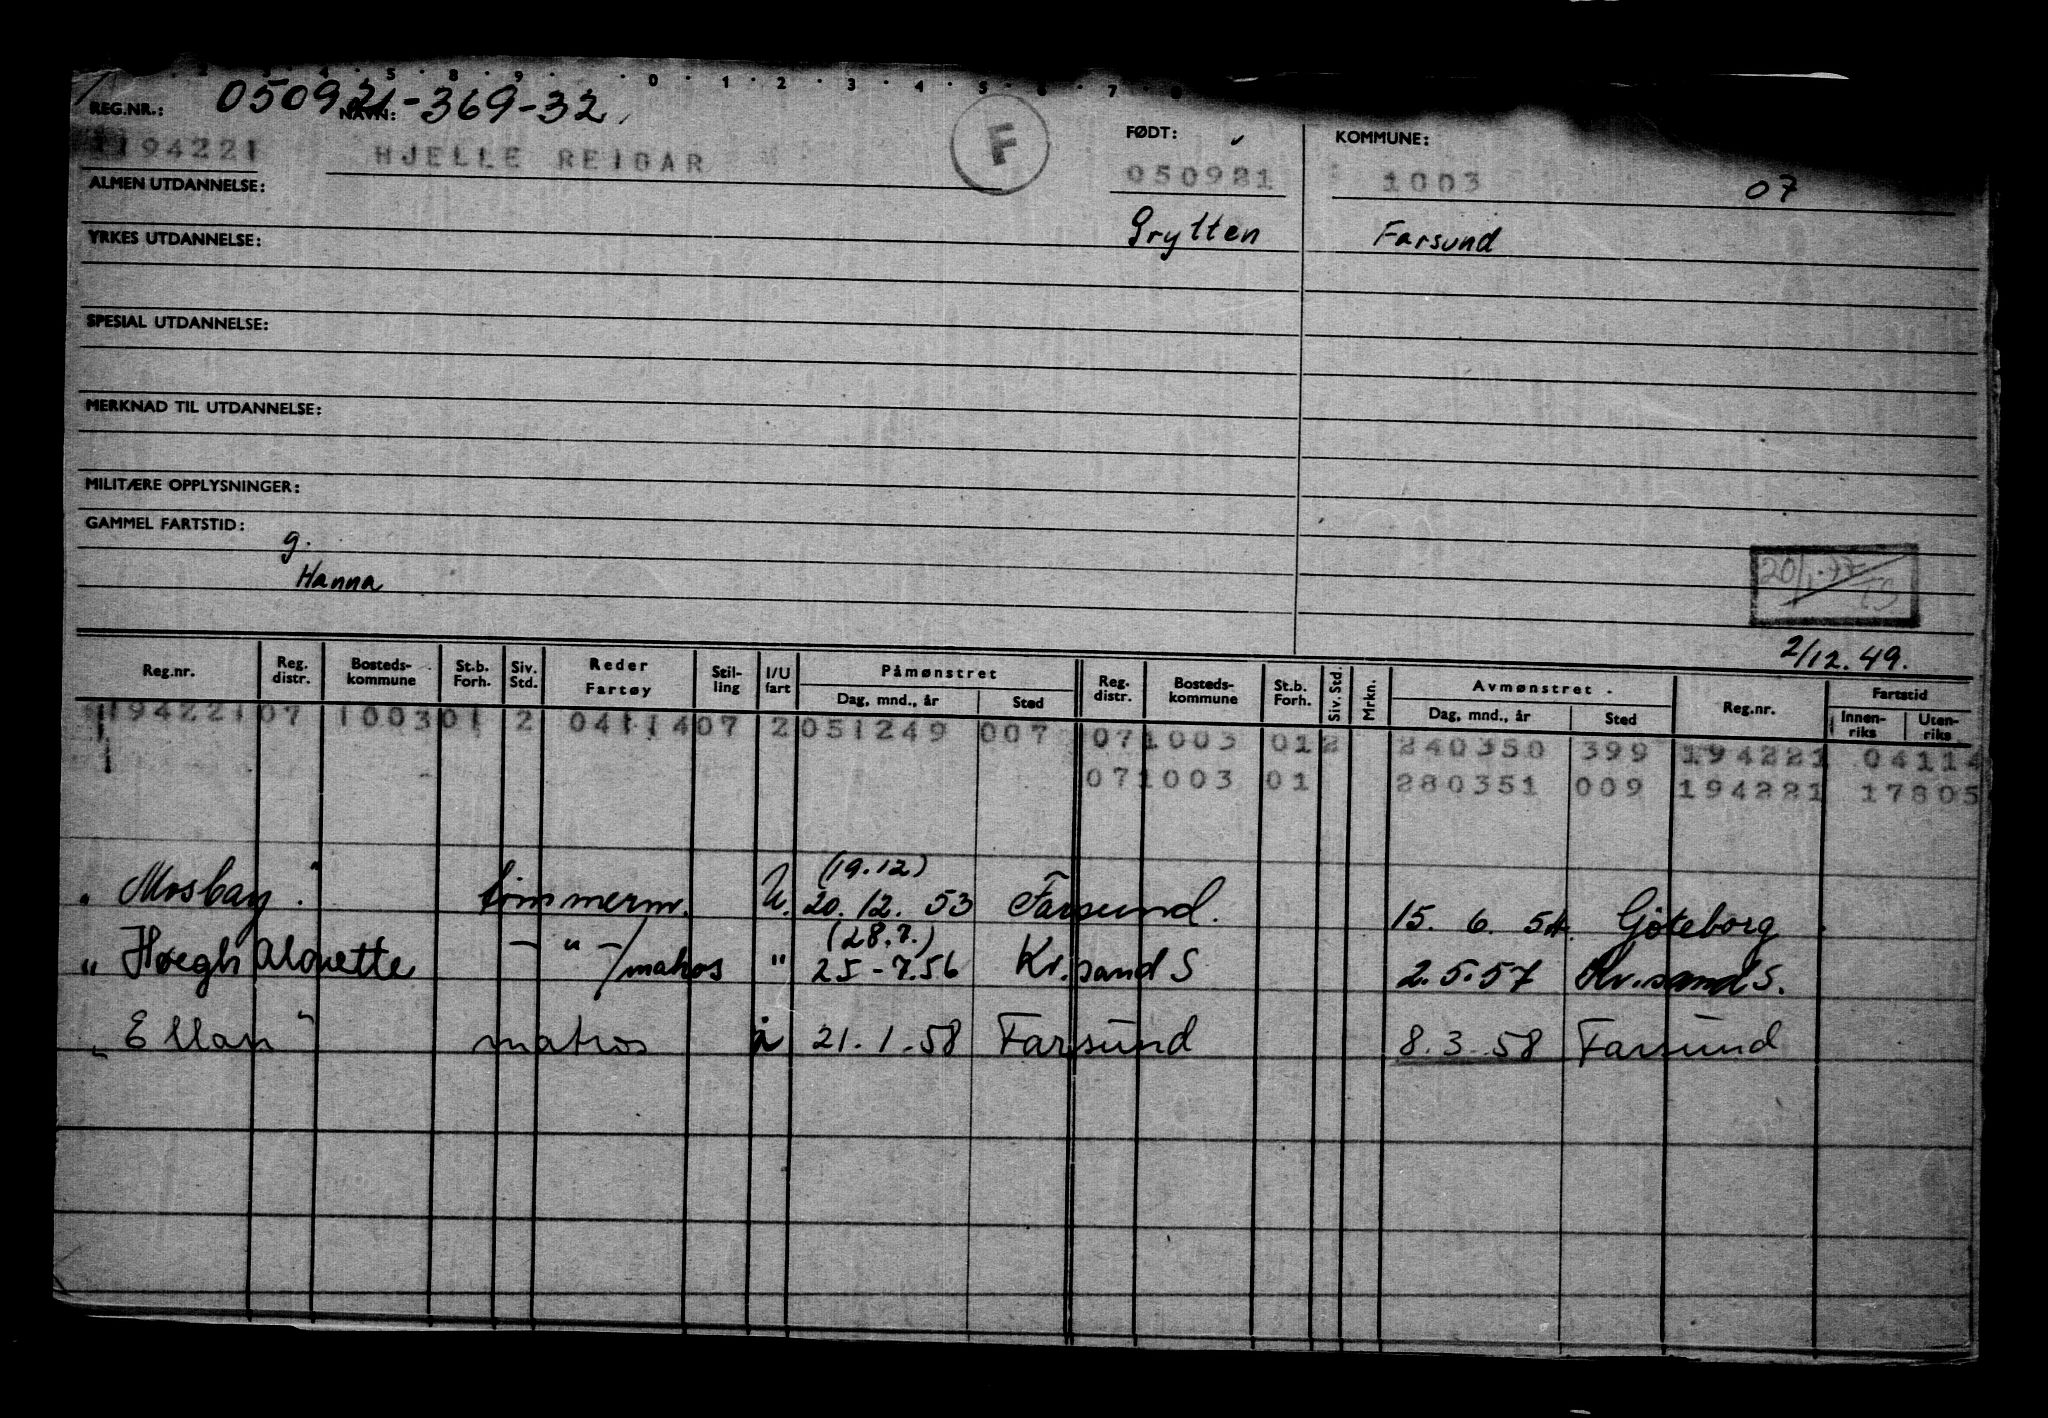 2 . 3 . 4 . 5 . 8 . 9 . 0 . 1 . 2 . 3 . 4 . 5 . 6 . 7 . 8
REG.NR.: 050921-369-32 NAVN: FØDT: KOMMUNE:
1194221 HJELLE REIDAR F 050921 1003 07
ALMEN UTDANNELSE:
Grytten Farsund
YRKES UTDANNELSE:
SPESIAL UTDANNELSE:
MERKNAD TIL UTDANNELSE:
MILITÆRE OPPLYSNINGER:
GAMMEL FARTSTID:
g.
Hanna
20/1-77
TS
2/12.49.
Reg.nr. Reg. distr. Bosteds-kommune St.b. Forh. Siv. Std. Reder Fartøy Stil-ling I/U fart Påmønstret Dag, mnd., år Sted Reg. distr. Bosteds-kommune St.b. Forh. Siv. Std. Mrkn. Avmønstret Dag, mnd., år Sted Reg.nr. Fartstid Innen-riks Uten-riks
1194221 07 1003 01 2 04114 07 2 051249 007 07 1003 01 2 240350 399 194221 04114
07 1003 01 280351 009 194221 17805
(19.12)
" Mosbay " tømmerm. U. 20.12.53 Farsund. 15.6.54. Göteborg
(28.7.)
" Høegh Alouette - " - / matros " 25-7.56 Kr.sand S 2.5.57 Kr.sand S.
" Ellan " matros i 21.1.58 Farsund 8.3.58 Farsund